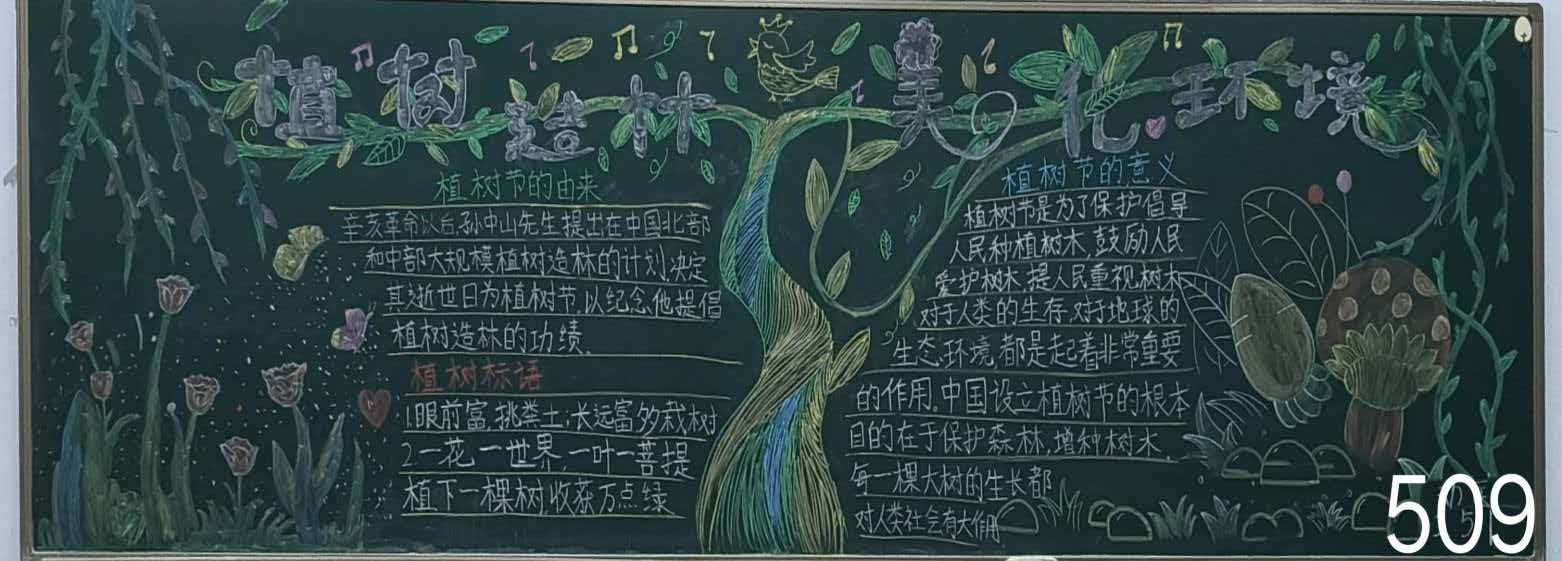 植树造林 美化环境
植树节的由来
辛亥革命以后,孙中山先生提出在中国北部
和中部大规模植树造林的计划,决定
其逝世日为植树节,以纪念他提倡
植树造林的功绩。
植树标语
1.眼前富,挑粪土;长远富多栽树
2.一花一世界,一叶一菩提
植下一棵树,收获万点绿
植树节的意义
植树节是为了保护倡导
人民种植树木,鼓励人民
爱护树木,提人民重视树木
对于人类的生存,对于地球的
生态环境,都是起着非常重要
的作用。中国设立植树节的根本
目的在于保护森林,增种树木。
每一棵大树的生长都
对人类社会有大作用
509